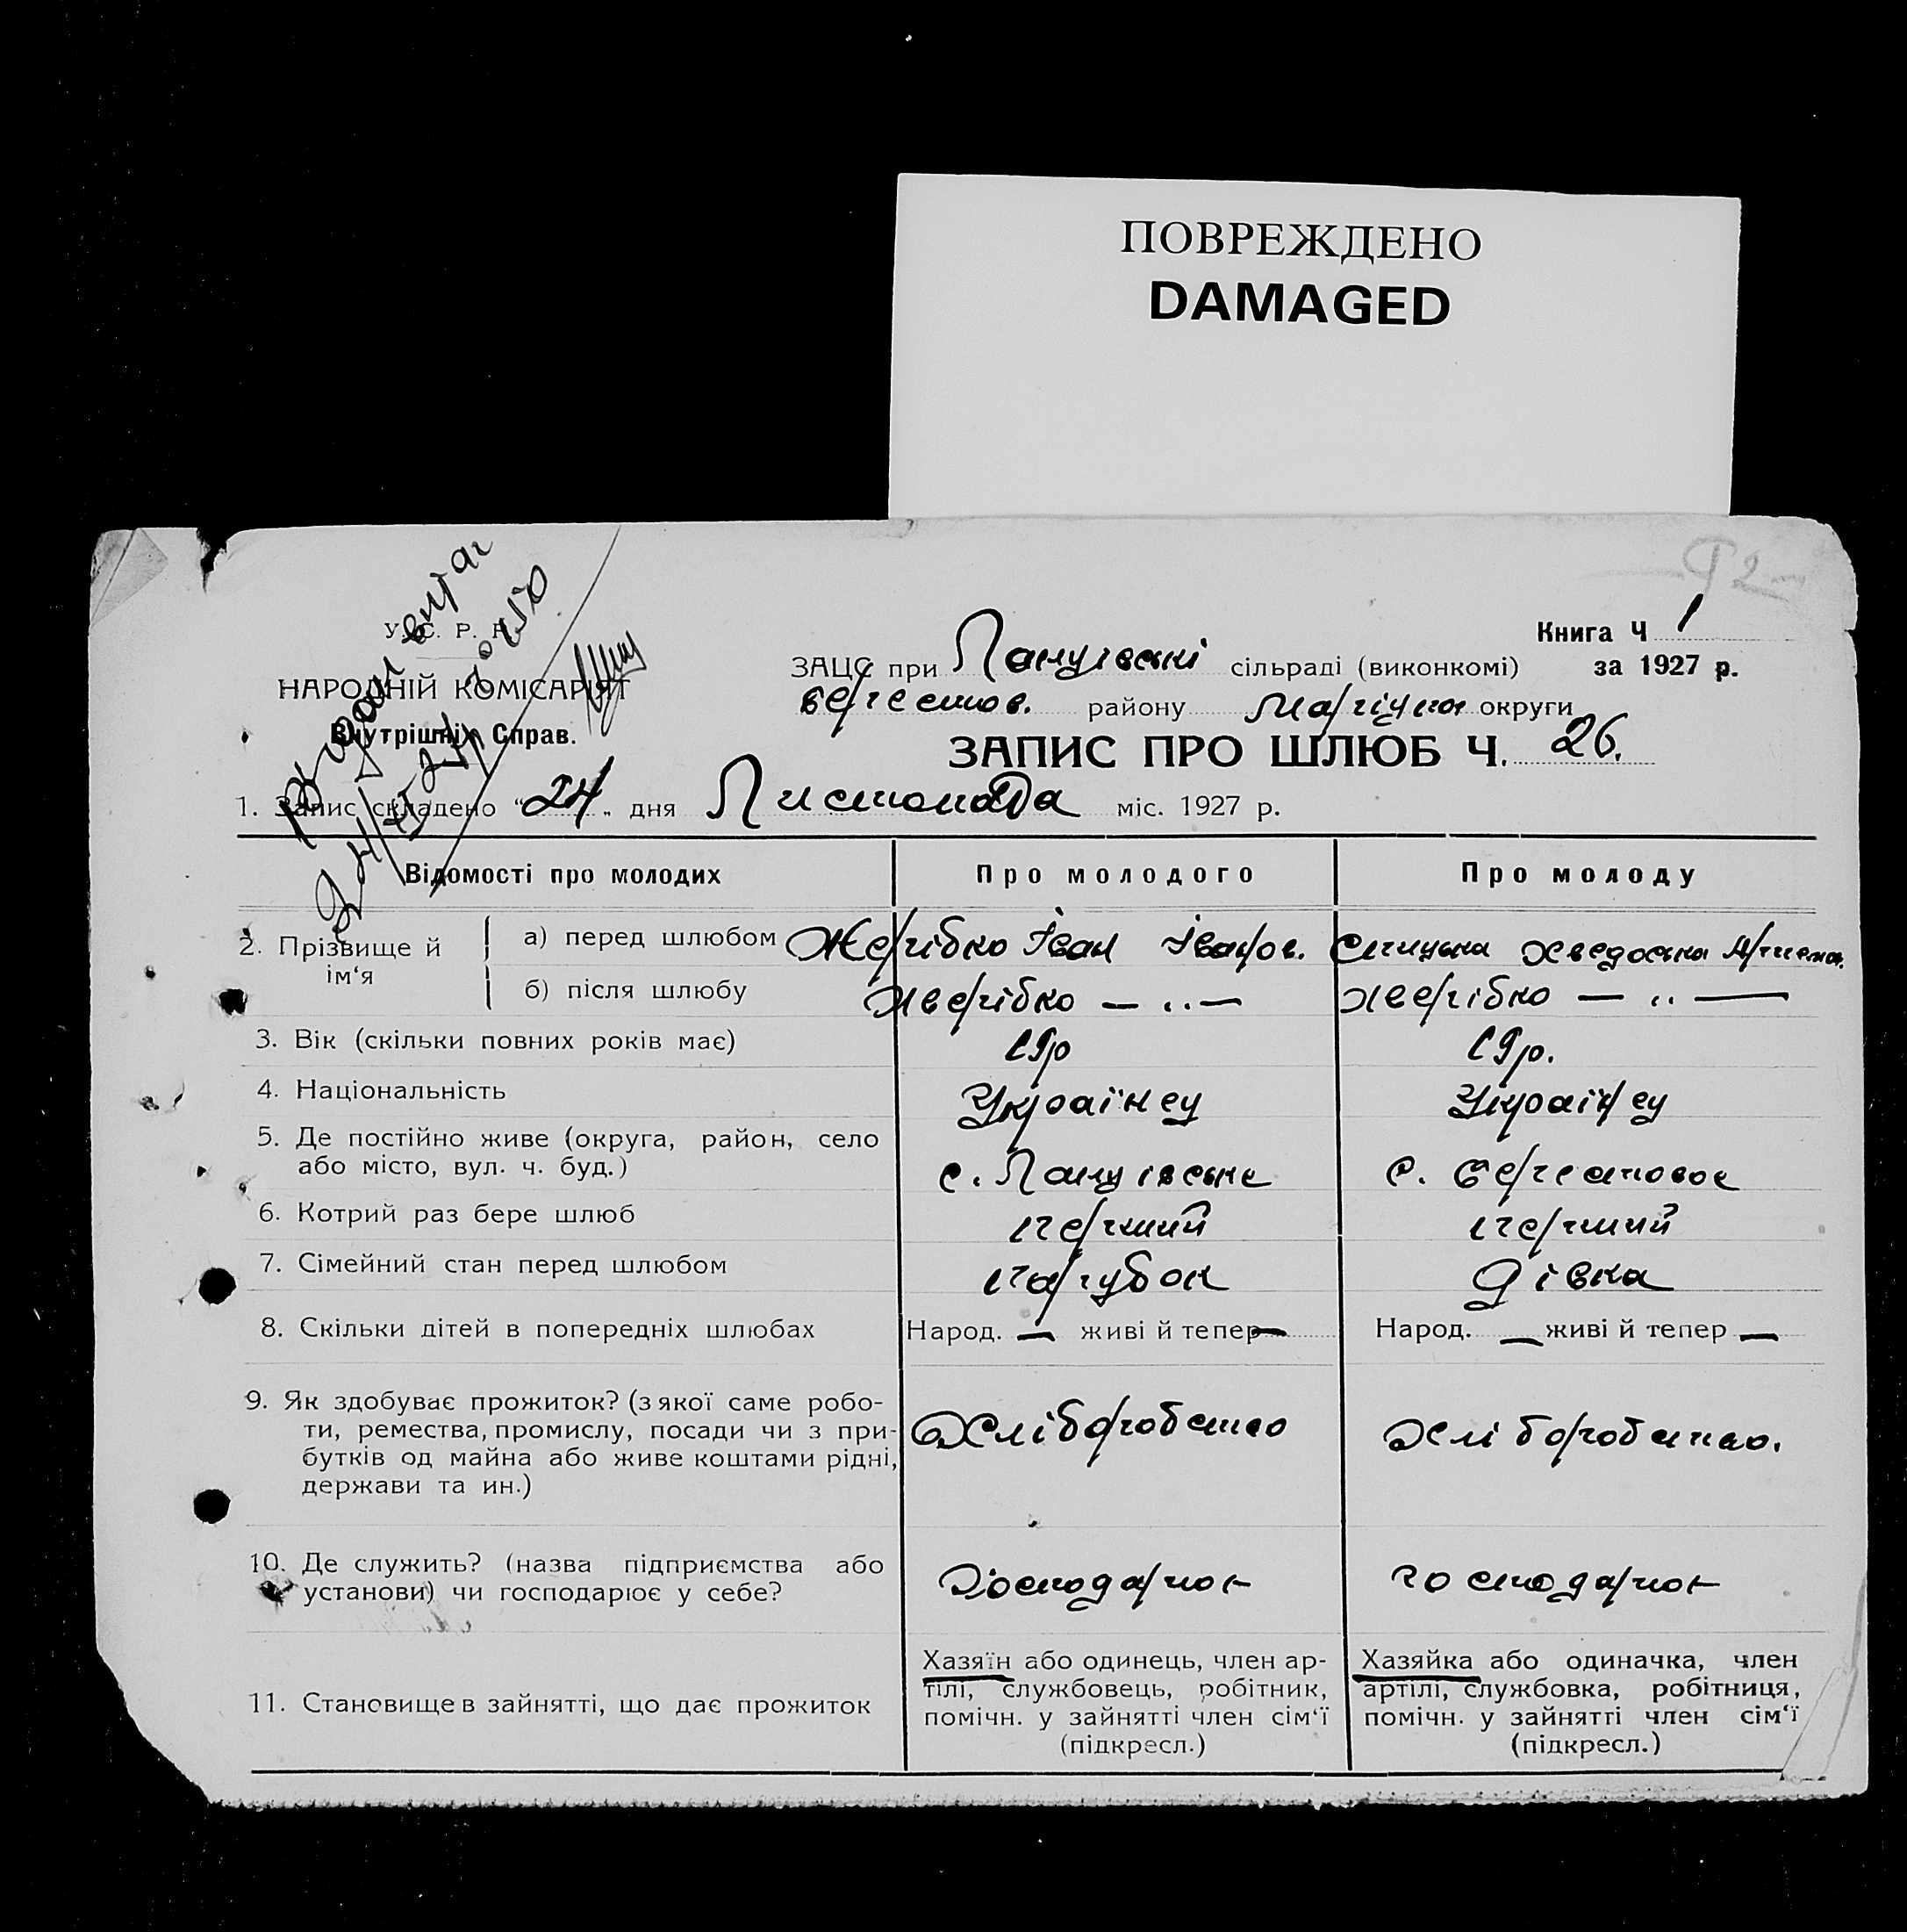 ПОВРЕЖДЕНО
DAMAGED
У. С. Р. Р.
НАРОДНІЙ КОМІСАРІЯТ
Внутрішніх Справ.
Книга Ч 1
за 1927 р.
ЗАЦС при Ланцівські сільраді (виконкомі)
району округи
ЗАПИС ПРО ШЛЮБ Ч. 26.
1. Запис складено "24" дня Листопада міс. 1927 р.
Відомості про молодих
Про молодого
Про молоду
2. Прізвище й ім‘я
а) перед шлюбом Іван Іванов.
б) після шлюбу — ,, — — ,, —
3. Вік (скільки повних років має) 19р 19р.
4. Національність Українец Українец
5. Де постійно живе (округа, район, село
або місто, вул. ч. буд.) с. Ланцівське с. Берестовое
6. Котрий раз бере шлюб перший перший
7. Сімейний стан перед шлюбом парубок дівка
8. Скільки дітей в попередніх шлюбах Народ. — живі й тепер — Народ. — живі й тепер —
9. Як здобуває прожиток? (з якої саме робо-
ти, ремества, промислу, посади чи з при-
бутків од майна або живе коштами рідні,
держави та ин.)
Хліборобство
Хліборобство.
10. Де служить? (назва підприємства або
установи) чи господарює у себе?
11. Становище в зайнятті, що дає прожиток
Хазяїн або одинець, член ар-
тілі, службовець, робітник,
помічн. у зайнятті член сім‘ї
(підкресл.)
Хазяйка або одиначка, член
артілі, службовка, робітниця,
помічн. у зайнятті член сім‘ї
(підкресл.)